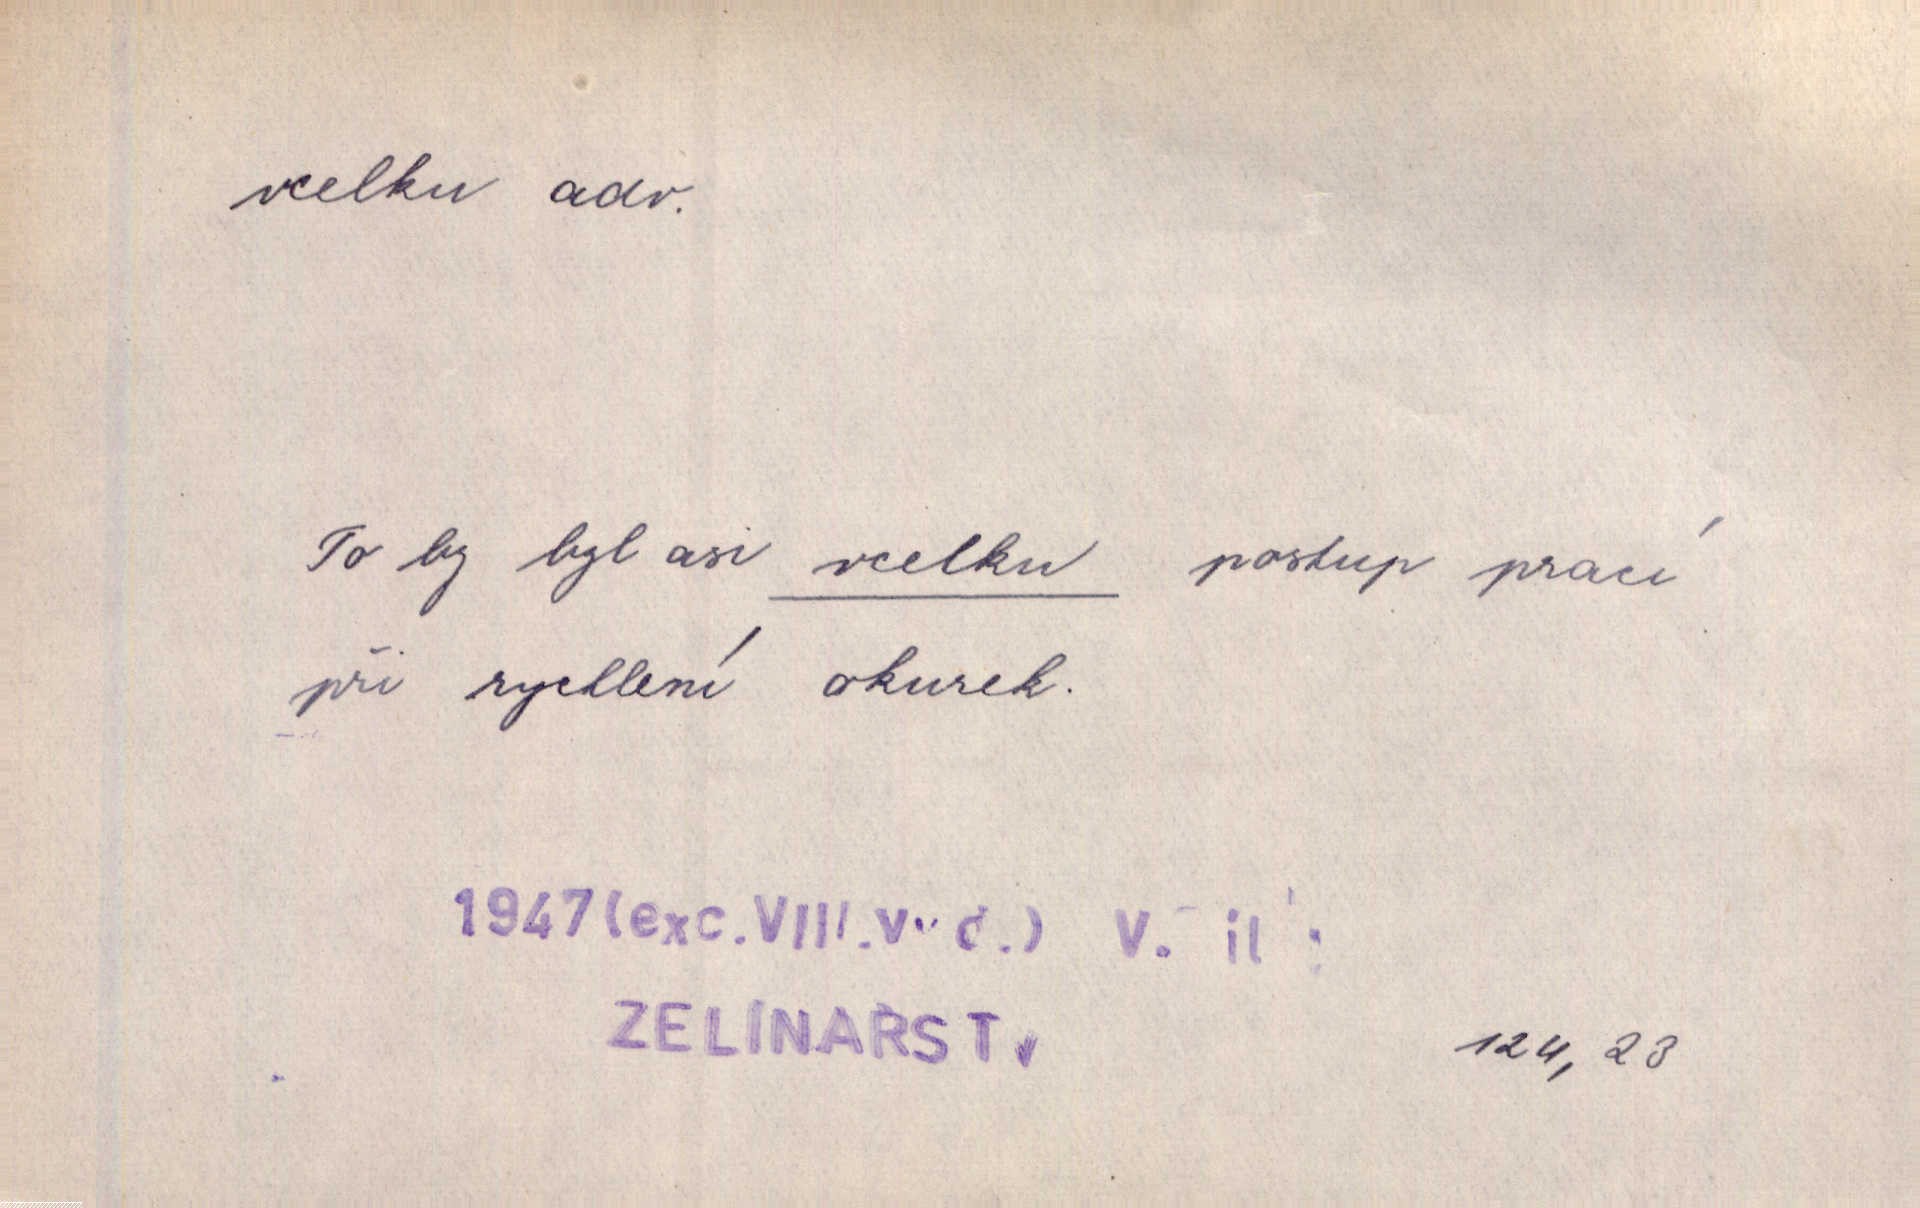 vcelku adv.
To by byl asi vcelku postup prací
při rychlení okurek.
1947 (exc. VIII. vyd.)
ZELINÁŘST.
124, 23